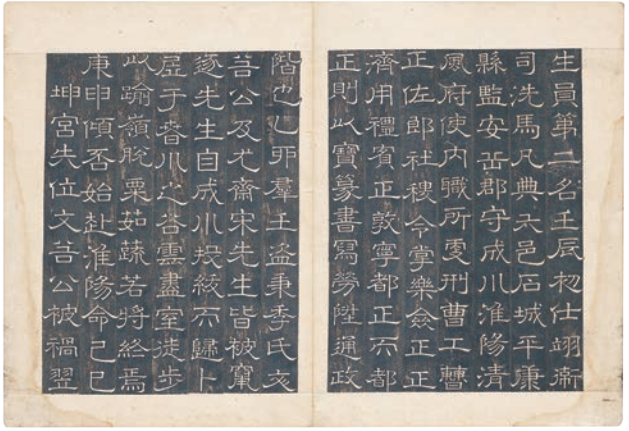 生員第二名壬辰初仕翊衛
司洗馬凡典六邑石城平康
縣監安岳郡守成川淮陽清
風府使內職所處刑曹工曹
正佐郎社稷令掌樂僉正正
濟用禮賓正敦寧都正而都
正則以寶篆書寫勞陞通政
階也乙卯羣壬盜秉季氏文
谷公及尤齋宋先生皆被竄
逐先生自成川投紱而歸卜
居于春川之谷雲盡室徒步
以踰嶺脫粟茹蔬若將終焉
庚申傾否始赴淮陽命己巳
坤宮失位文谷公被禍翌